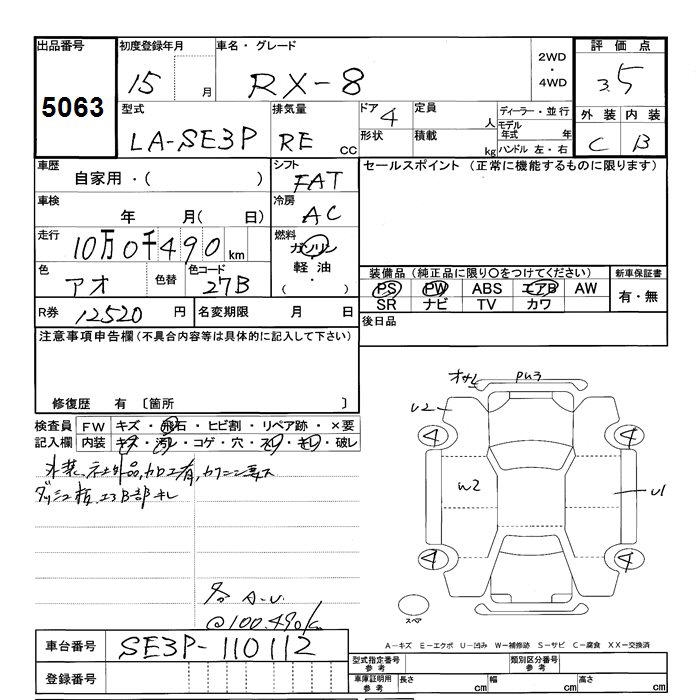 出品番号 初度登録年月 車名・グレード 2WD・4WD 評価点
5063 15 月 RX-8 3.5
型式 排気量 ドア 4 定員 人 ディーラー・並行 外装 内装
LA-SE3P RE CC 形状 積載 kg モデル年式 年 C B
ハンドル 左・右
車歴 シフト セールスポイント (正常に機能するものに限ります)
自家用・( ) FAT
車検 冷房
年 月( 日) AC
走行 燃料
10万0千490km ガソリン
軽油
・( )
色 色替 色コード 装備品(純正品に限り○をつけてください) 新車保証書
アオ 27B PS PW ABS エアB AW 有・無
SR ナビ TV カワ
R券 12520 円 名変期限 月 日 後日品
注意事項申告欄(不具合内容等は具体的に記入して下さい)
修復歴 有 〔箇所 〕
検査員 FW キズ・飛石・ヒビ割・リペア跡・×要
記入欄 内装 キズ・汚レ・コゲ・穴・スレ・キレ・破レ
A.U.
@100.490
4 4
W2 U1
4 4
U2
スペア
車台番号 SE3P-110112
登録番号
A-キズ E-エクボ U-凹み W-補修跡 S-サビ C-腐食 XX-交換済
型式指定番号 参考 類別区分番号 参考
車庫証明用 参考 長さ cm 幅 cm 高さ cm